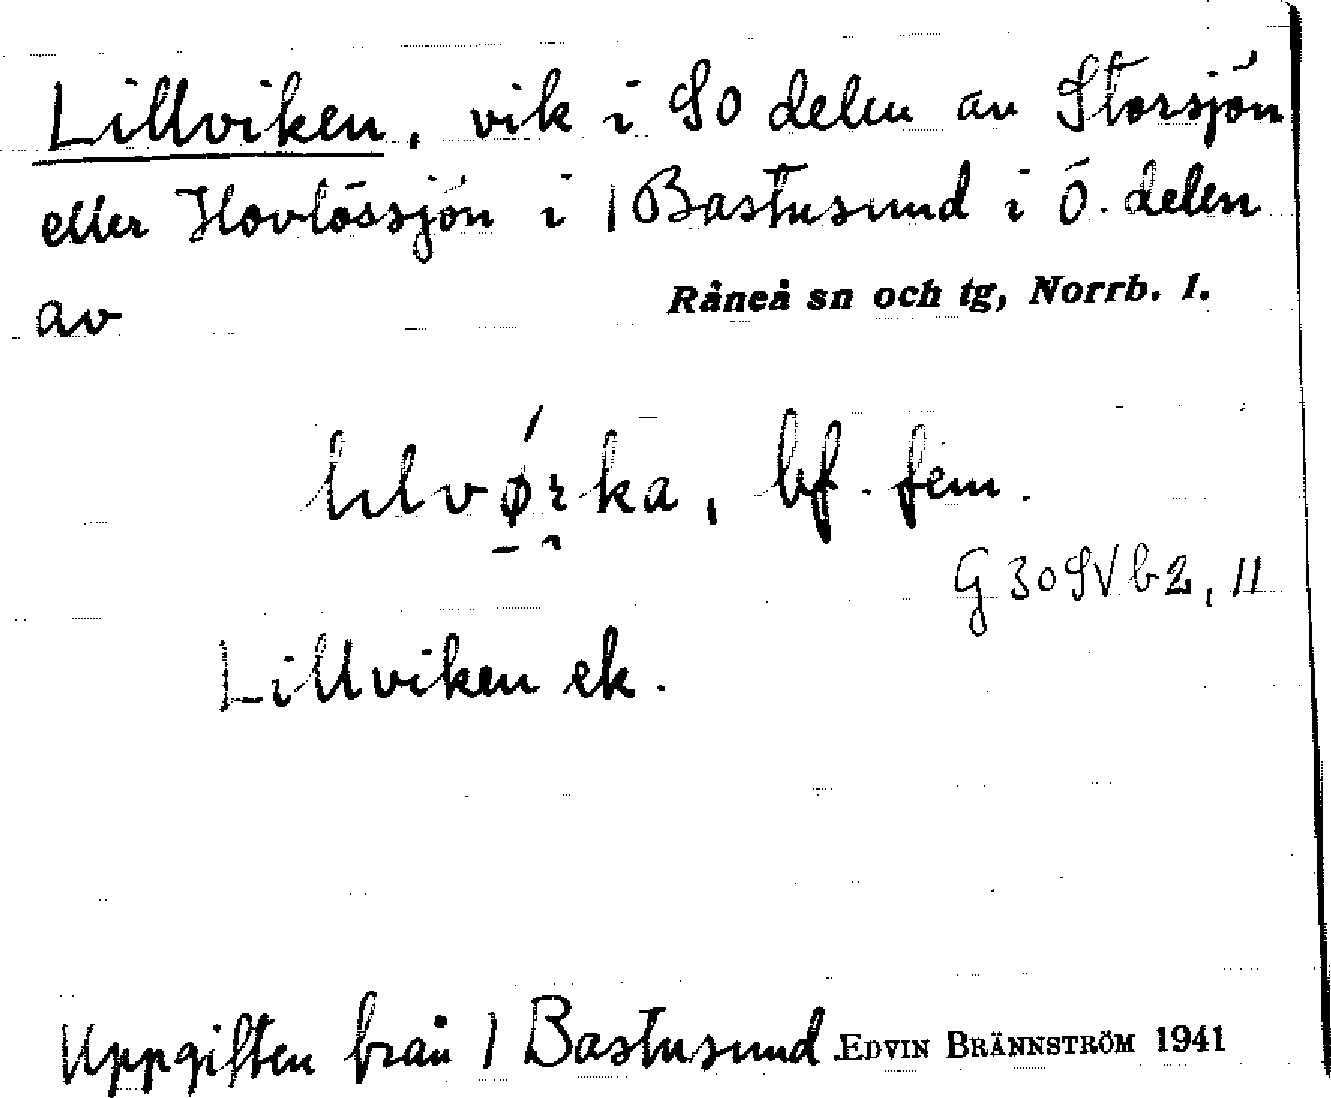 Lillviken, vik i SO delen av Storsjön
eller Hovlössjön i 1 Bastusund i Ö. delen
av Råneå sn och tg, Norrb. l.
bf. fem.
G 30 SV b 2, 11
Lillviken ek.
Uppgiften från 1 Bastusund. EDVIN BRÄNNSTRÖM 1941